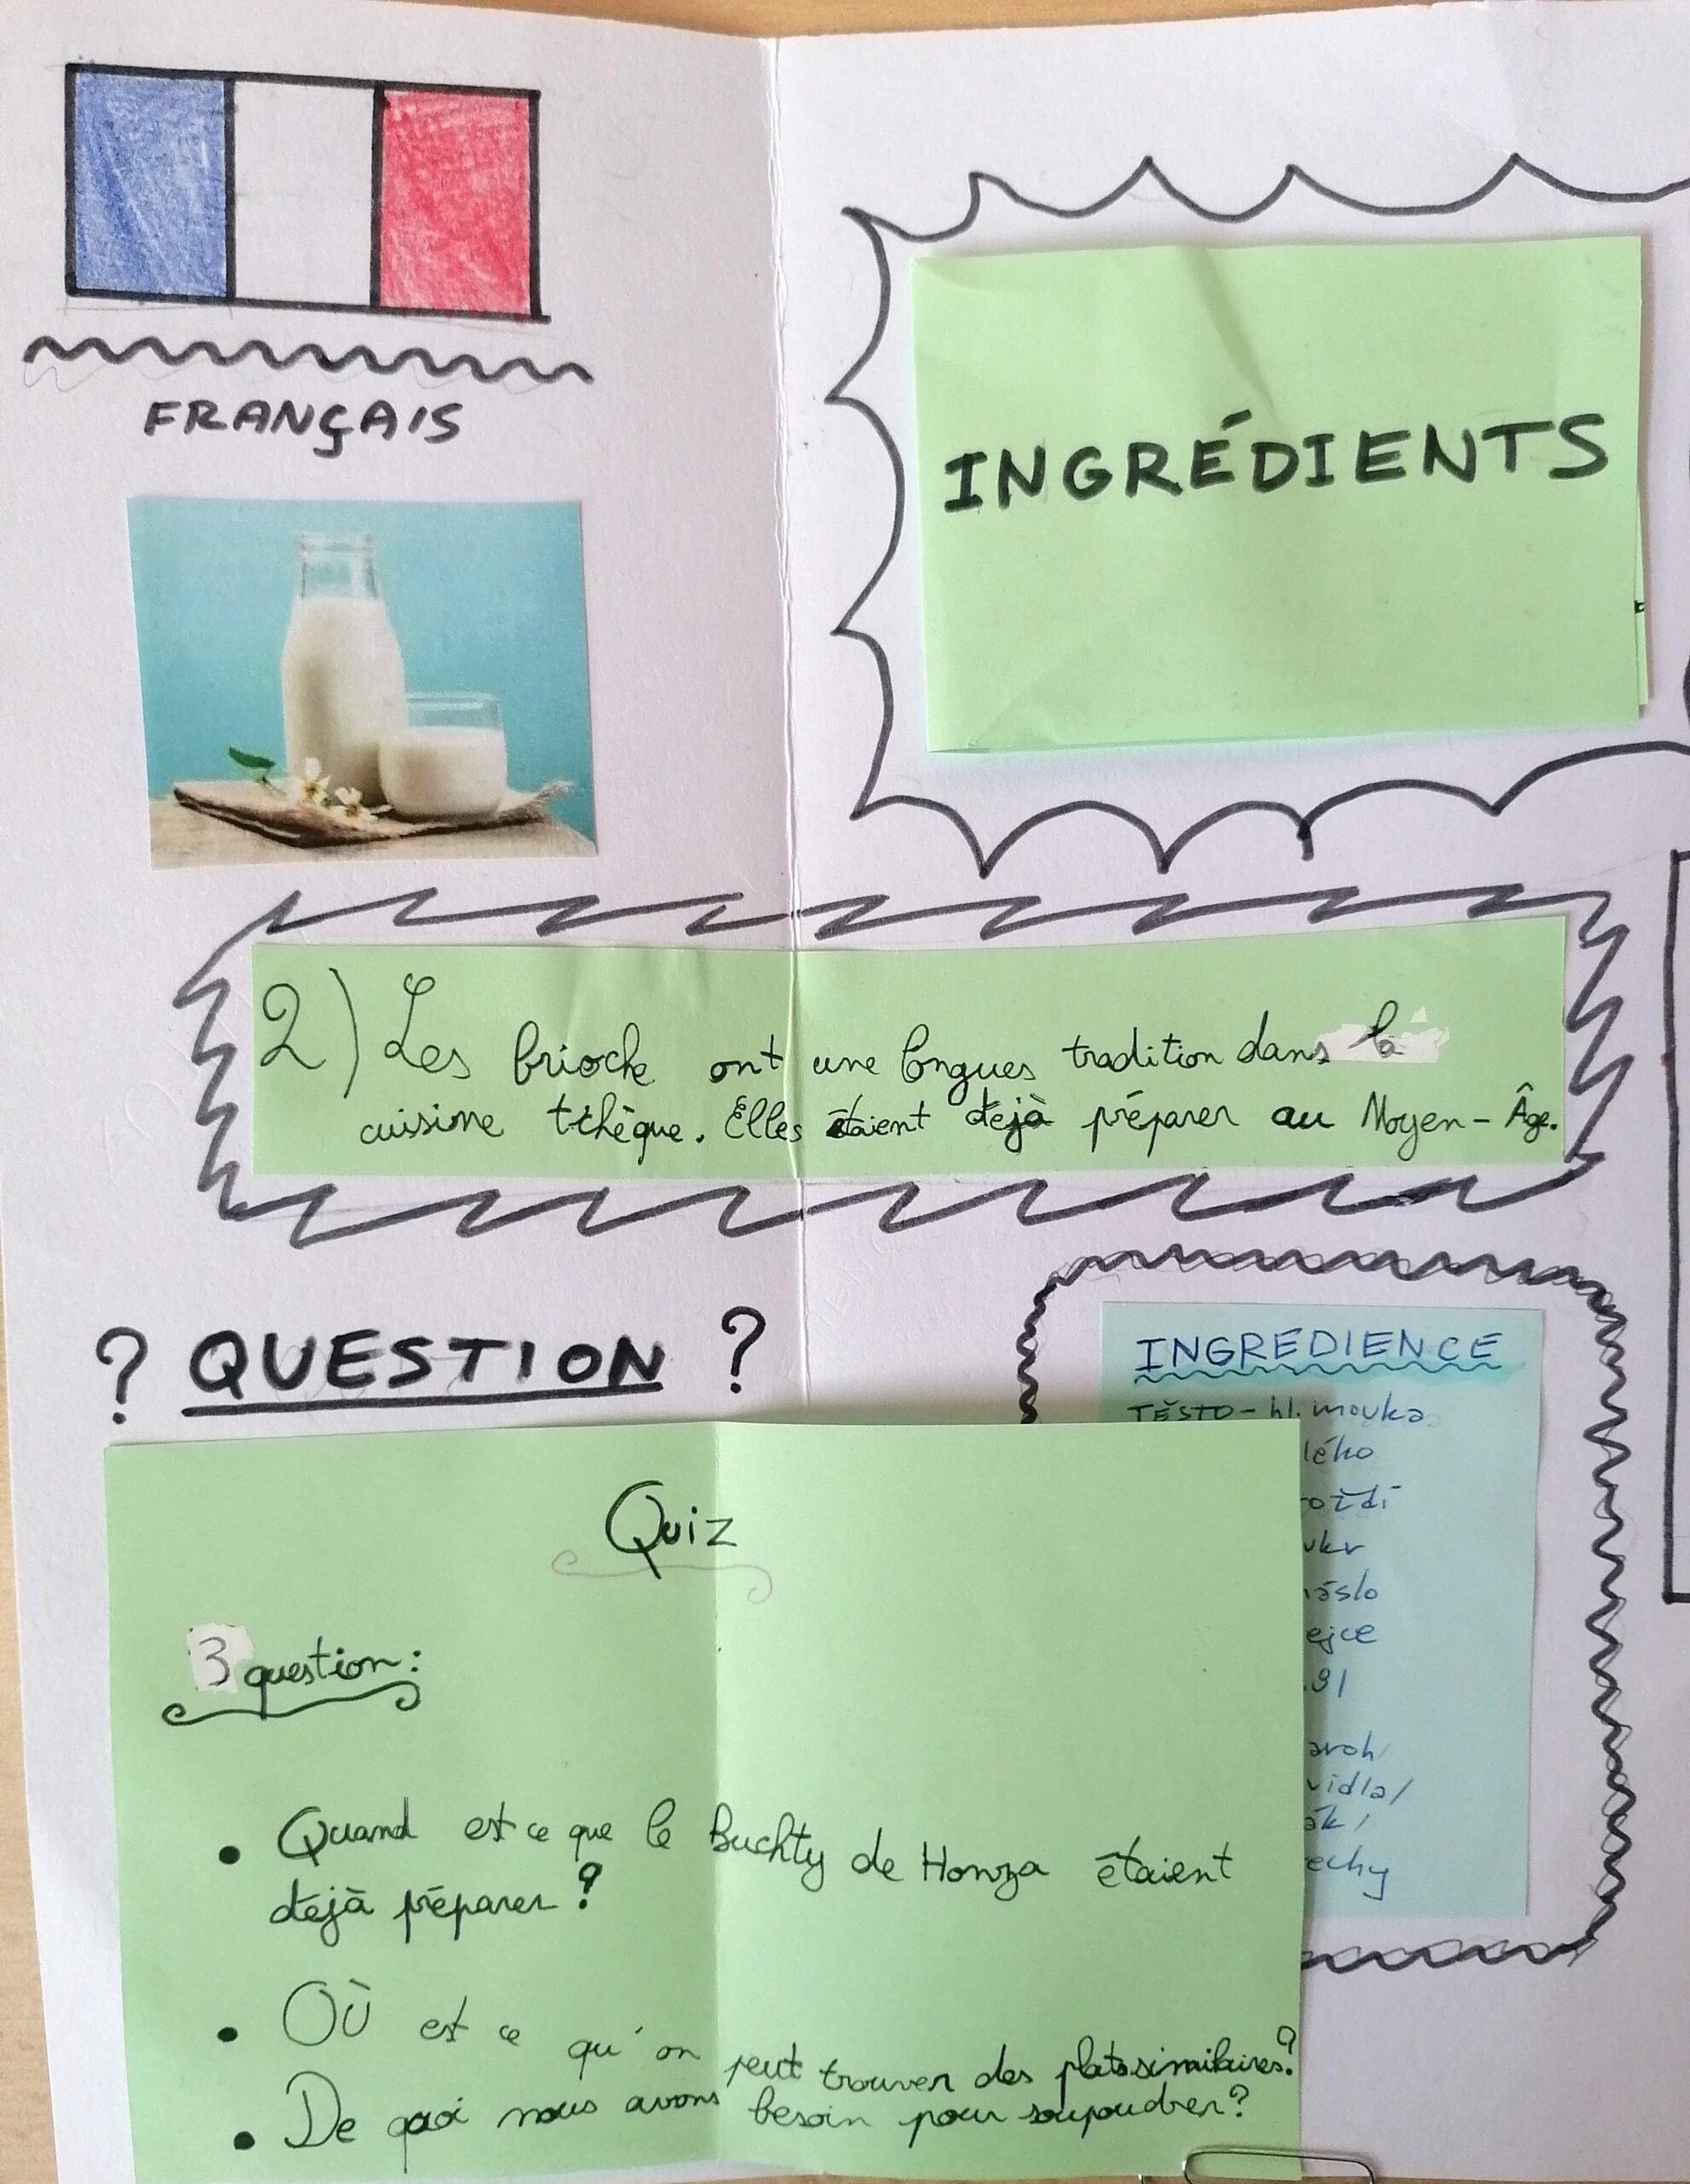 FRANÇAIS
INGRÉDIENTS
2) Les brioche ont une longues tradition dans la
cuisine tchèque. Elles étaient dejà préparer au Moyen-Âge.
? QUESTION ?
INGREDIENCE
TĚSTO - hl. mouka
Quiz
3 question:
• Quand est ce que le Buchty de Honza étaient
dejà préparer ?
• Où est ce qu'on peut trouver des plats similaires?
• De quoi nous avons besoin pour soupoudrer?